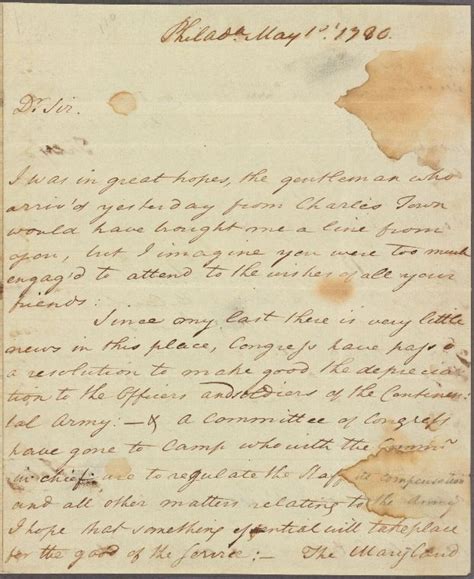 Philada. May 1st. 1780.
Dr. Sir.
I was in great hopes, the gentleman who
arriv'd yesterday from Charles Town
would have brought me a line from
you, but I imagine you were too much
engag'd to attend to the wishes of all your
friends.
Since my last there is very little
news in this place, Congress have pass'd
a resolution to make good the deprecia-
tion to the Officers and soldiers of the Continen-
tal Army:— & a Committee of Congress
have gone to Camp who with the
in chief, are to regulate the Staff its compensation
and all other matters relating to the Army
I hope that something essential will take place
for the good of the service:— The Maryland